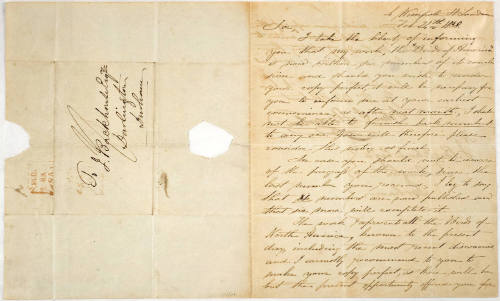 To J. Backhouse Esqr
Darlington
Durham
Wimpole St London
Feb 20th 18
Sir,
I take the liberty of informing
you that my work, the Birds of America
is now within six numbers of its conclu-
sion and should you wish to render
your copy perfect, it will be necessary for
you to inform me at your earliest
convenience, as after next month, I shall
not be able to furnish back numbers
to any one. You will therefore please
consider this notice as final.
In case you should not be aware
of the progress of the work, since the
last number you received, I beg to say
that numbers are now published and
that six more will complete it.
The work represents all the Birds of
North America, known to the present
day including the most recent discoveries
and I earnestly recommend to you to
make your copy perfect, as there will be
but the present opportunity afforded you for